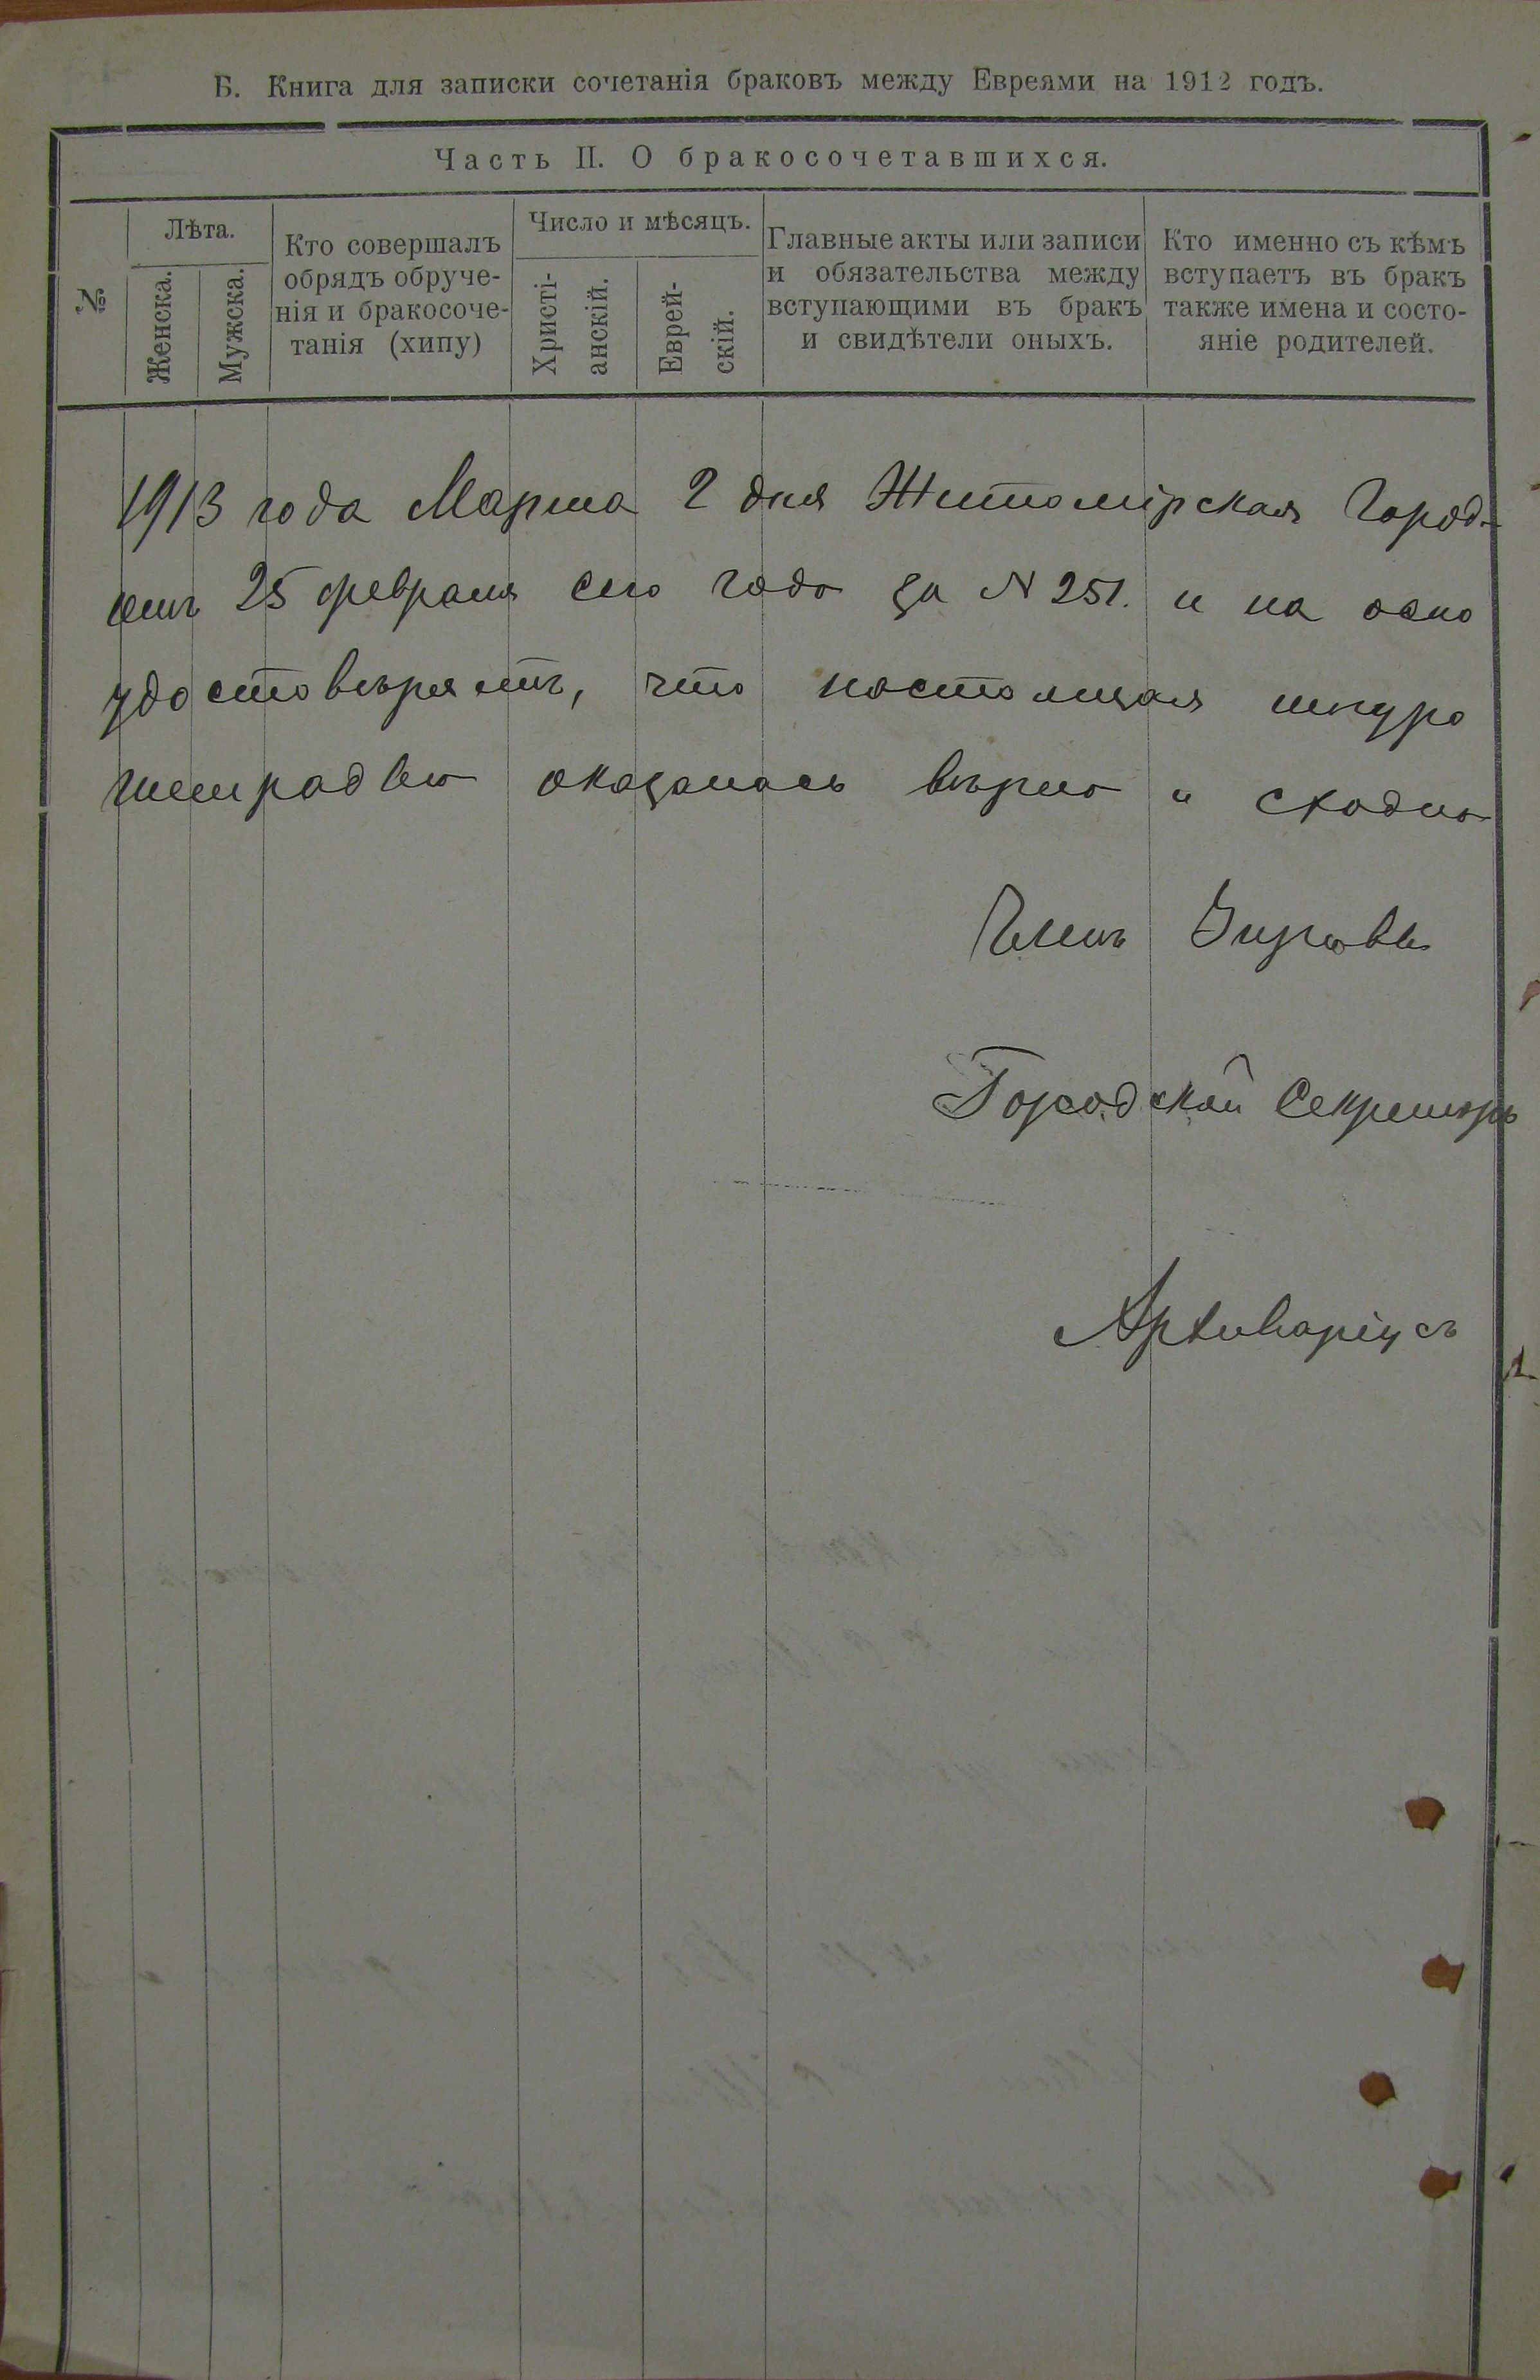 Б. Книга для записки сочетанія браковъ между Евреями на 1912 годъ.
Часть II. О бракосочетавшихся.
№
Лѣта.
Женска.
Мужска.
Кто совершалъ
обрядъ обруче-
нія и бракосоче-
танія (хипу)
Число и мѣсяцъ.
Христі-
анскій.
Еврей-
скій.
Главные акты или записи
и обязательства между
вступающими въ бракъ
и свидѣтели оныхъ.
Кто именно съ кѣмъ
вступаетъ въ бракъ
также имена и состо-
яніе родителей.
1913 года Марта 2 дня Житомірская Город-
емъ 25 февраля сего года за N 251. и на осно
удостовѣряетъ, что настоящая шнуро
тетрадью оказалась вѣрно и сходно
Членъ Управы
Городской Секретарь
Архиваріусъ